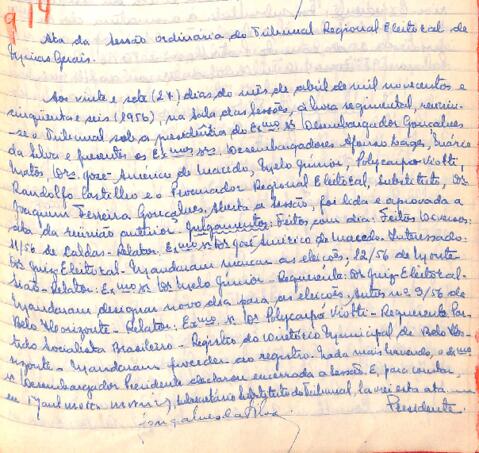 914
Ata da sessão ordinária do Tribunal Regional Eleitoral de
Minas Gerais.
Aos vinte e sete (27) dias do mês de abril de mil novecentos e
cinquenta e seis (1956), na sala das sessões, à hora regimental, reuniu-
se o Tribunal sob a presidência do Exmo Sr. Desembargador Gonçalves
da Silva e presentes os Exmos Srs. Desembargadores Afonso Lages, Mário
Matos, Drs. José Américo de Macedo, Melo Júnior, Polycarpo Viotti
Randolfo Castilho e o Procurador Regional Eleitoral, Substituto, Dr.
Joaquim Ferreira Gonçalves. Aberta a sessão, foi lida e aprovada a
ata da reunião anterior. Julgamentos: Feitos com dia: Feitos Diversos:
11/56 de Caldas - Relator: Exmo Sr. Dr. José Américo de Macedo. Interessado:
Dr. Juiz Eleitoral - Mandaram marcar as eleições, 12/56 de Monte
Sião - Relator: Exmo Sr. Dr. Melo Júnior - Requerente: Dr. Juiz Eleitoral -
Mandaram designar novo dia para as eleições, autos nº 9/56 de
Belo Horizonte - Relator: Exmo Sr. Dr. Polycarpo Viotti - Requerente Par-
tido Socialista Brasileiro - Registro do Diretório Municipal de Belo Ho-
rizonte - Mandaram proceder ao registro. Nada mais havendo, o Exmo
Sr. Desembargador Presidente declarou encerrada a sessão. E, para constar,
eu subsecretário substituto do Tribunal, lavrei esta ata
Gonçalves da Silva Presidente.